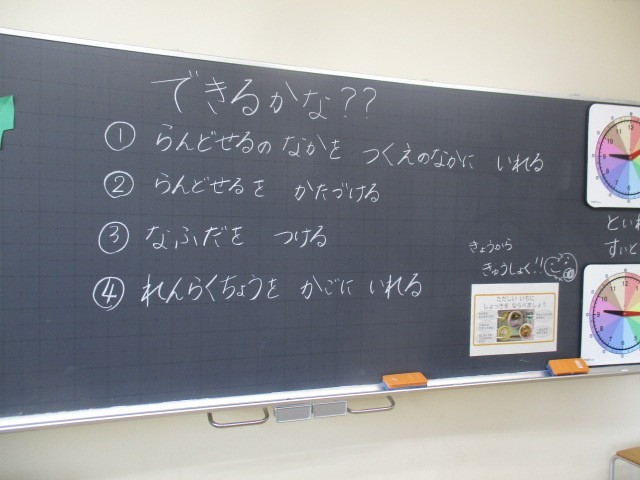 できるかな??
① らんどせるの なかを つくえのなかに いれる
② らんどせるを かたづける
③ なふだを つける
④ れんらくちょうを かごに いれる
きょうから
きゅうしょく!!
ただしい いちに
しょっきを ならべましょう